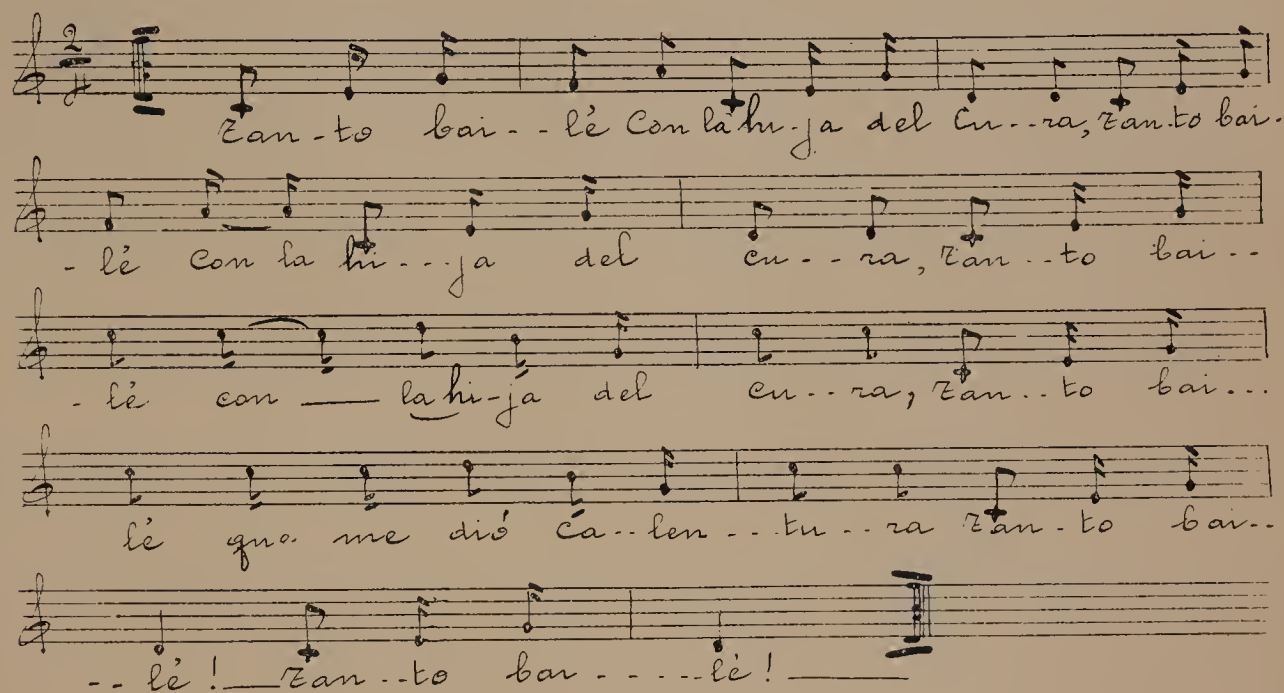 2
4
Tan-to bai--lé Con la hi-ja del Cu--ra, Tan-to bai-
-lé Con la hi---ja del cu--ra, Tan--to bai--
-lé con ___ la hi-ja del cu--ra, Tan--to bai...
lé que me dió Ca--len---tu--ra Tan-to bai--
--lé!__Tan--to bai-----lé!____